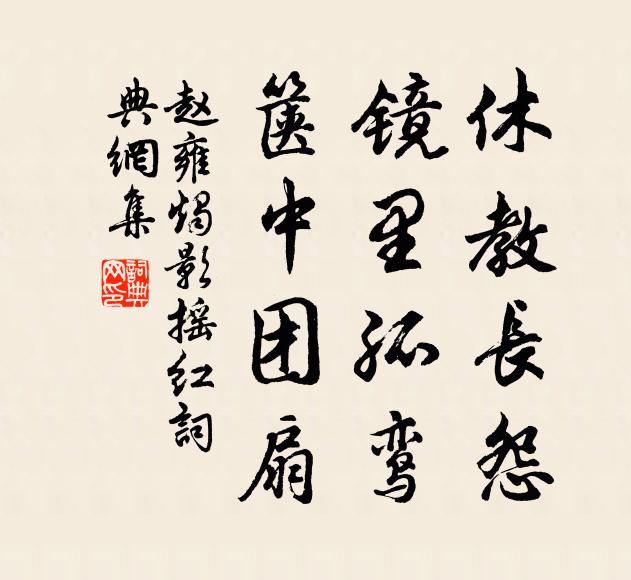 休教长怨
镜里孤鸾
箧中团扇
赵雍烛影摇红詞
典網集
詞典
网印